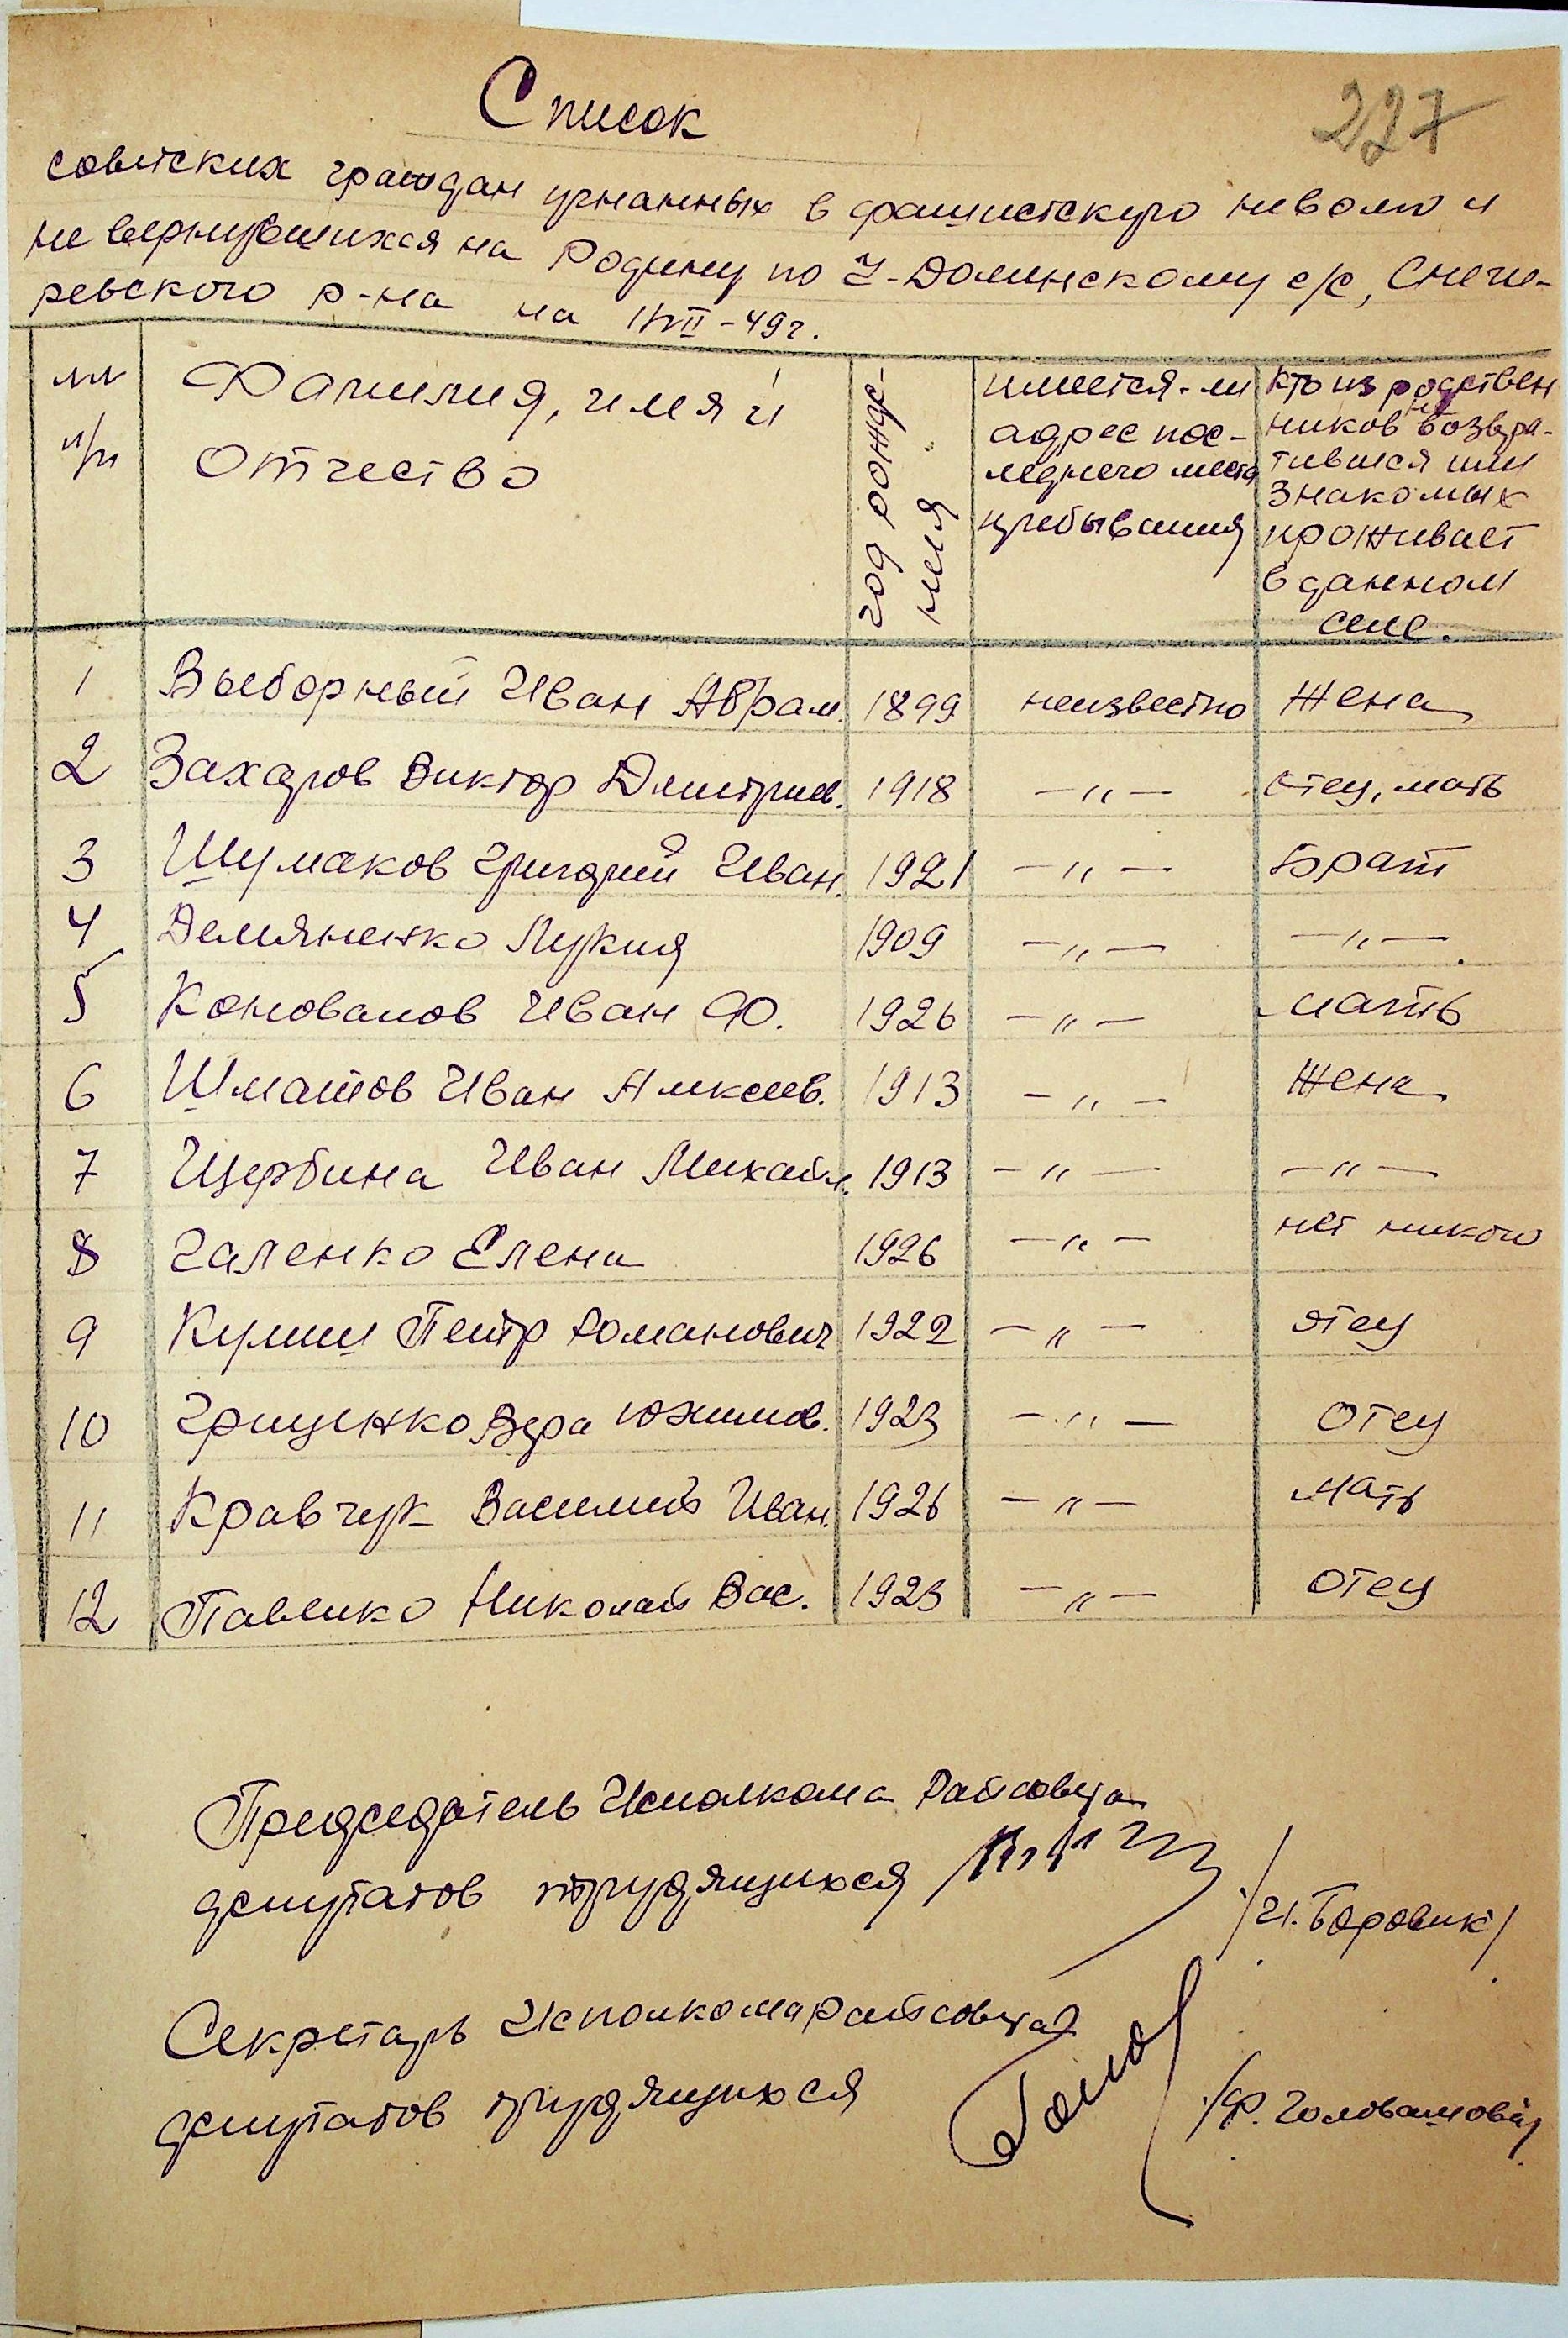 227
Список
советских граждан угнанных в фашистскую неволю и
не вернувшихся на Родину по У-Долинскому с/с, Снеги-
ревского р-на на 1/VII-49г.
№№ п/п
Фамилия, имя и
Отчество
год рожде-
ния
имеется-ли
адрес пос-
леднего места
пребывания
Кто из родствен
ников не возвра-
тившися или
знакомых
проживает
в данном
селе.
1 Выборный Иван Абрам. 1899 неизвестно Жена
2 Захаров Виктор Дмитриев. 1918 -"- отец, мать
3 Шумаков Григорий Иван. 1921 -"- Брат
4 Демяненко Лукия 1909 -"- -"-.
5 Коновалов Иван Ф. 1926 -"- мать
6 Шматов Иван Алексеев. 1913 -"- Жена
7 Щербина Иван Михайл. 1913 -"- -"-
8 Галенко Елена 1926 -"- нет никого
9 Кулиш Петр Романович 1922 -"- отец
10 Грищенко Вера Юхимов. 1923 -"- Отец
11 Кравчук Василий Иван. 1926 -"- Мать
12 Павленко Николай Вас. 1923 -"- Отец
Председатель Исполкома Райсовета
депутатов трудящихся
/И. Боровик/
Секретарь Исполкома райсовета
депутатов трудящихся
/Ф. Головашова/